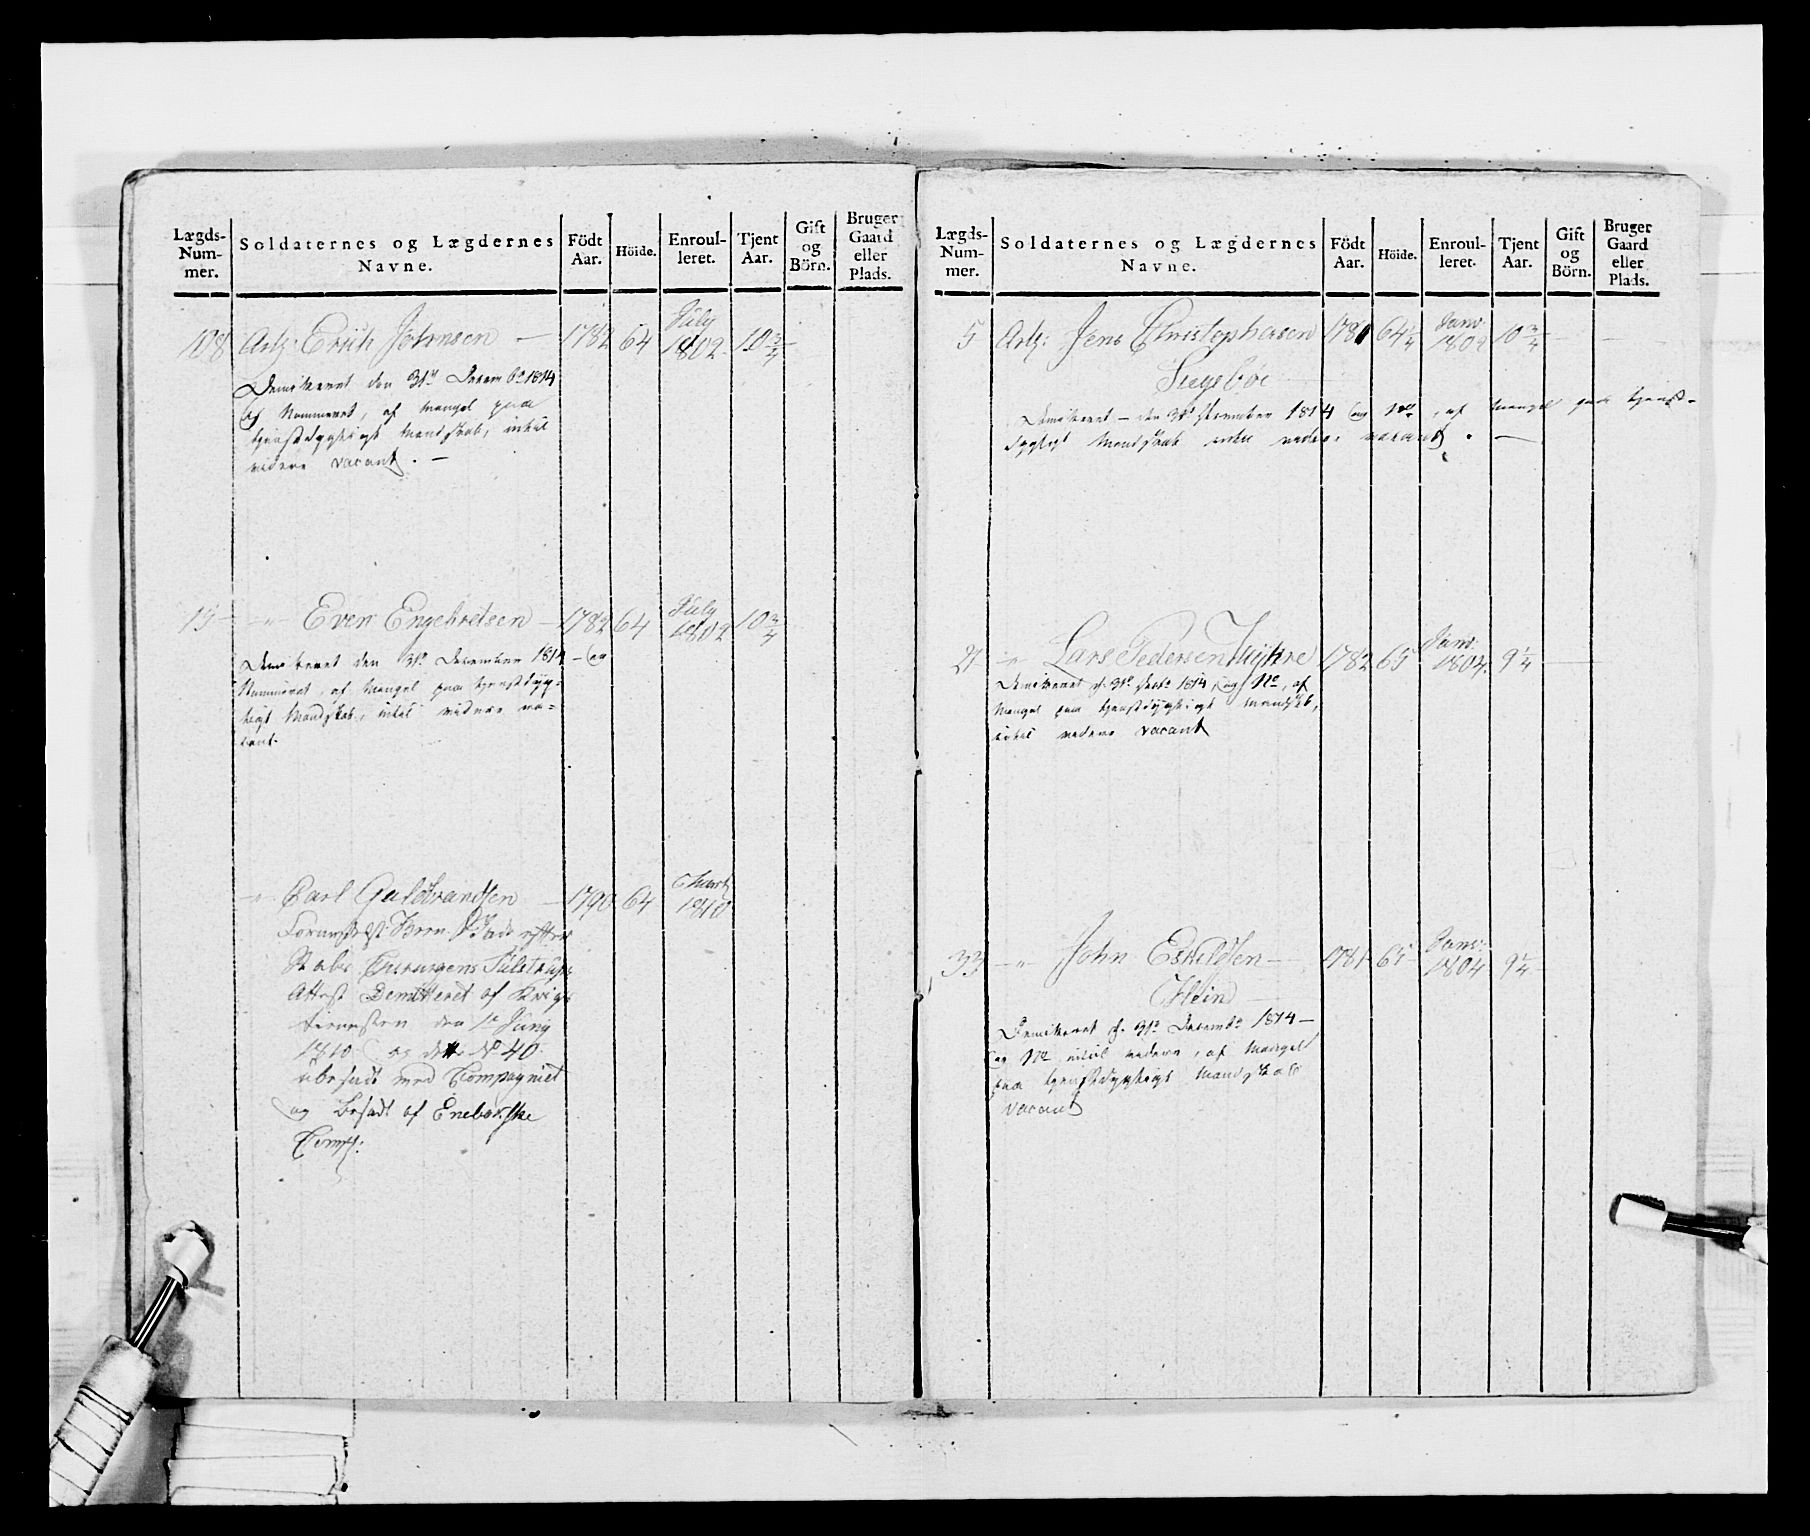 Lægds- Num- mer.
Soldaternes og Lægdernes Navne.
Födt Aar.
Höide.
Enroul- leret.
Tjent Aar.
Gift og Börn.
Bruger Gaard eller Plads.
108 Erich Johnsen — 1782 64 July 1802. 10 3/4
Demitteret den 31te Decembr 1814
og Nummeret, af Mangel paa
tjenstdygtigt Mandskab, indtil
videre vacant. —
15 — " — Even Engebretsen — 1782 64 July 1802 10 3/4
Demitteret den 31te December 1814 — og
Nummeret, af Mangel paa tjenstdyg-
tigt Mandskab, indtil videre va-
cant.
— " — Carl Guldbrandsen — 1790 64 1810
efter
Stabs Chirurgens
Attest Demitteret af Krigs
tienesten den 1te Juny
1810 og dette No 40
besadt ved Compagniet
og besadt af Enebakske
Comp:
Lægds- Num- mer.
Soldaternes og Lægdernes Navne.
Födt Aar.
Höide.
Enroul- leret.
Tjent Aar.
Gift og Börn.
Bruger Gaard eller Plads.
5 Jens Christophersen 1781 64 1/4 Janv: 1802 10 3/4
Demitteret — den 31te December 1814 og No, af Mangel paa tjenst-
dygtigt Mandskab indtil videre vacant. —
21 — " — Lars Pedersen 1782 65 Janv: 1804. 9 1/4
Demitteret d. 31te Decbr 1814, og No, af
Mangel paa tjenstdygtigt Mandskab,
indtil videre vacant
33 — " — John Eskildsen — 1781 65 Janv: 1804 9 1/4
Demitteret d. 31te Decembr 1814 —
og No indtil videre, af Mangel
paa tjenstdygtigt Mandskab
vacant